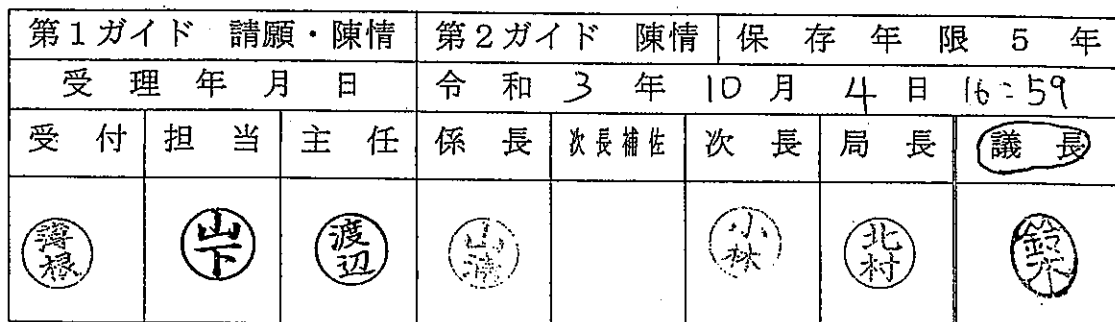 第1ガイド 請願・陳情 第2ガイド 陳情 保存年限 5年
受理年月日 令和3年10月4日 16:59
受付 担当 主任 係長 次長補佐 次長 局長 議長
薄根 山下 渡辺 山 小林 北村 鈴木